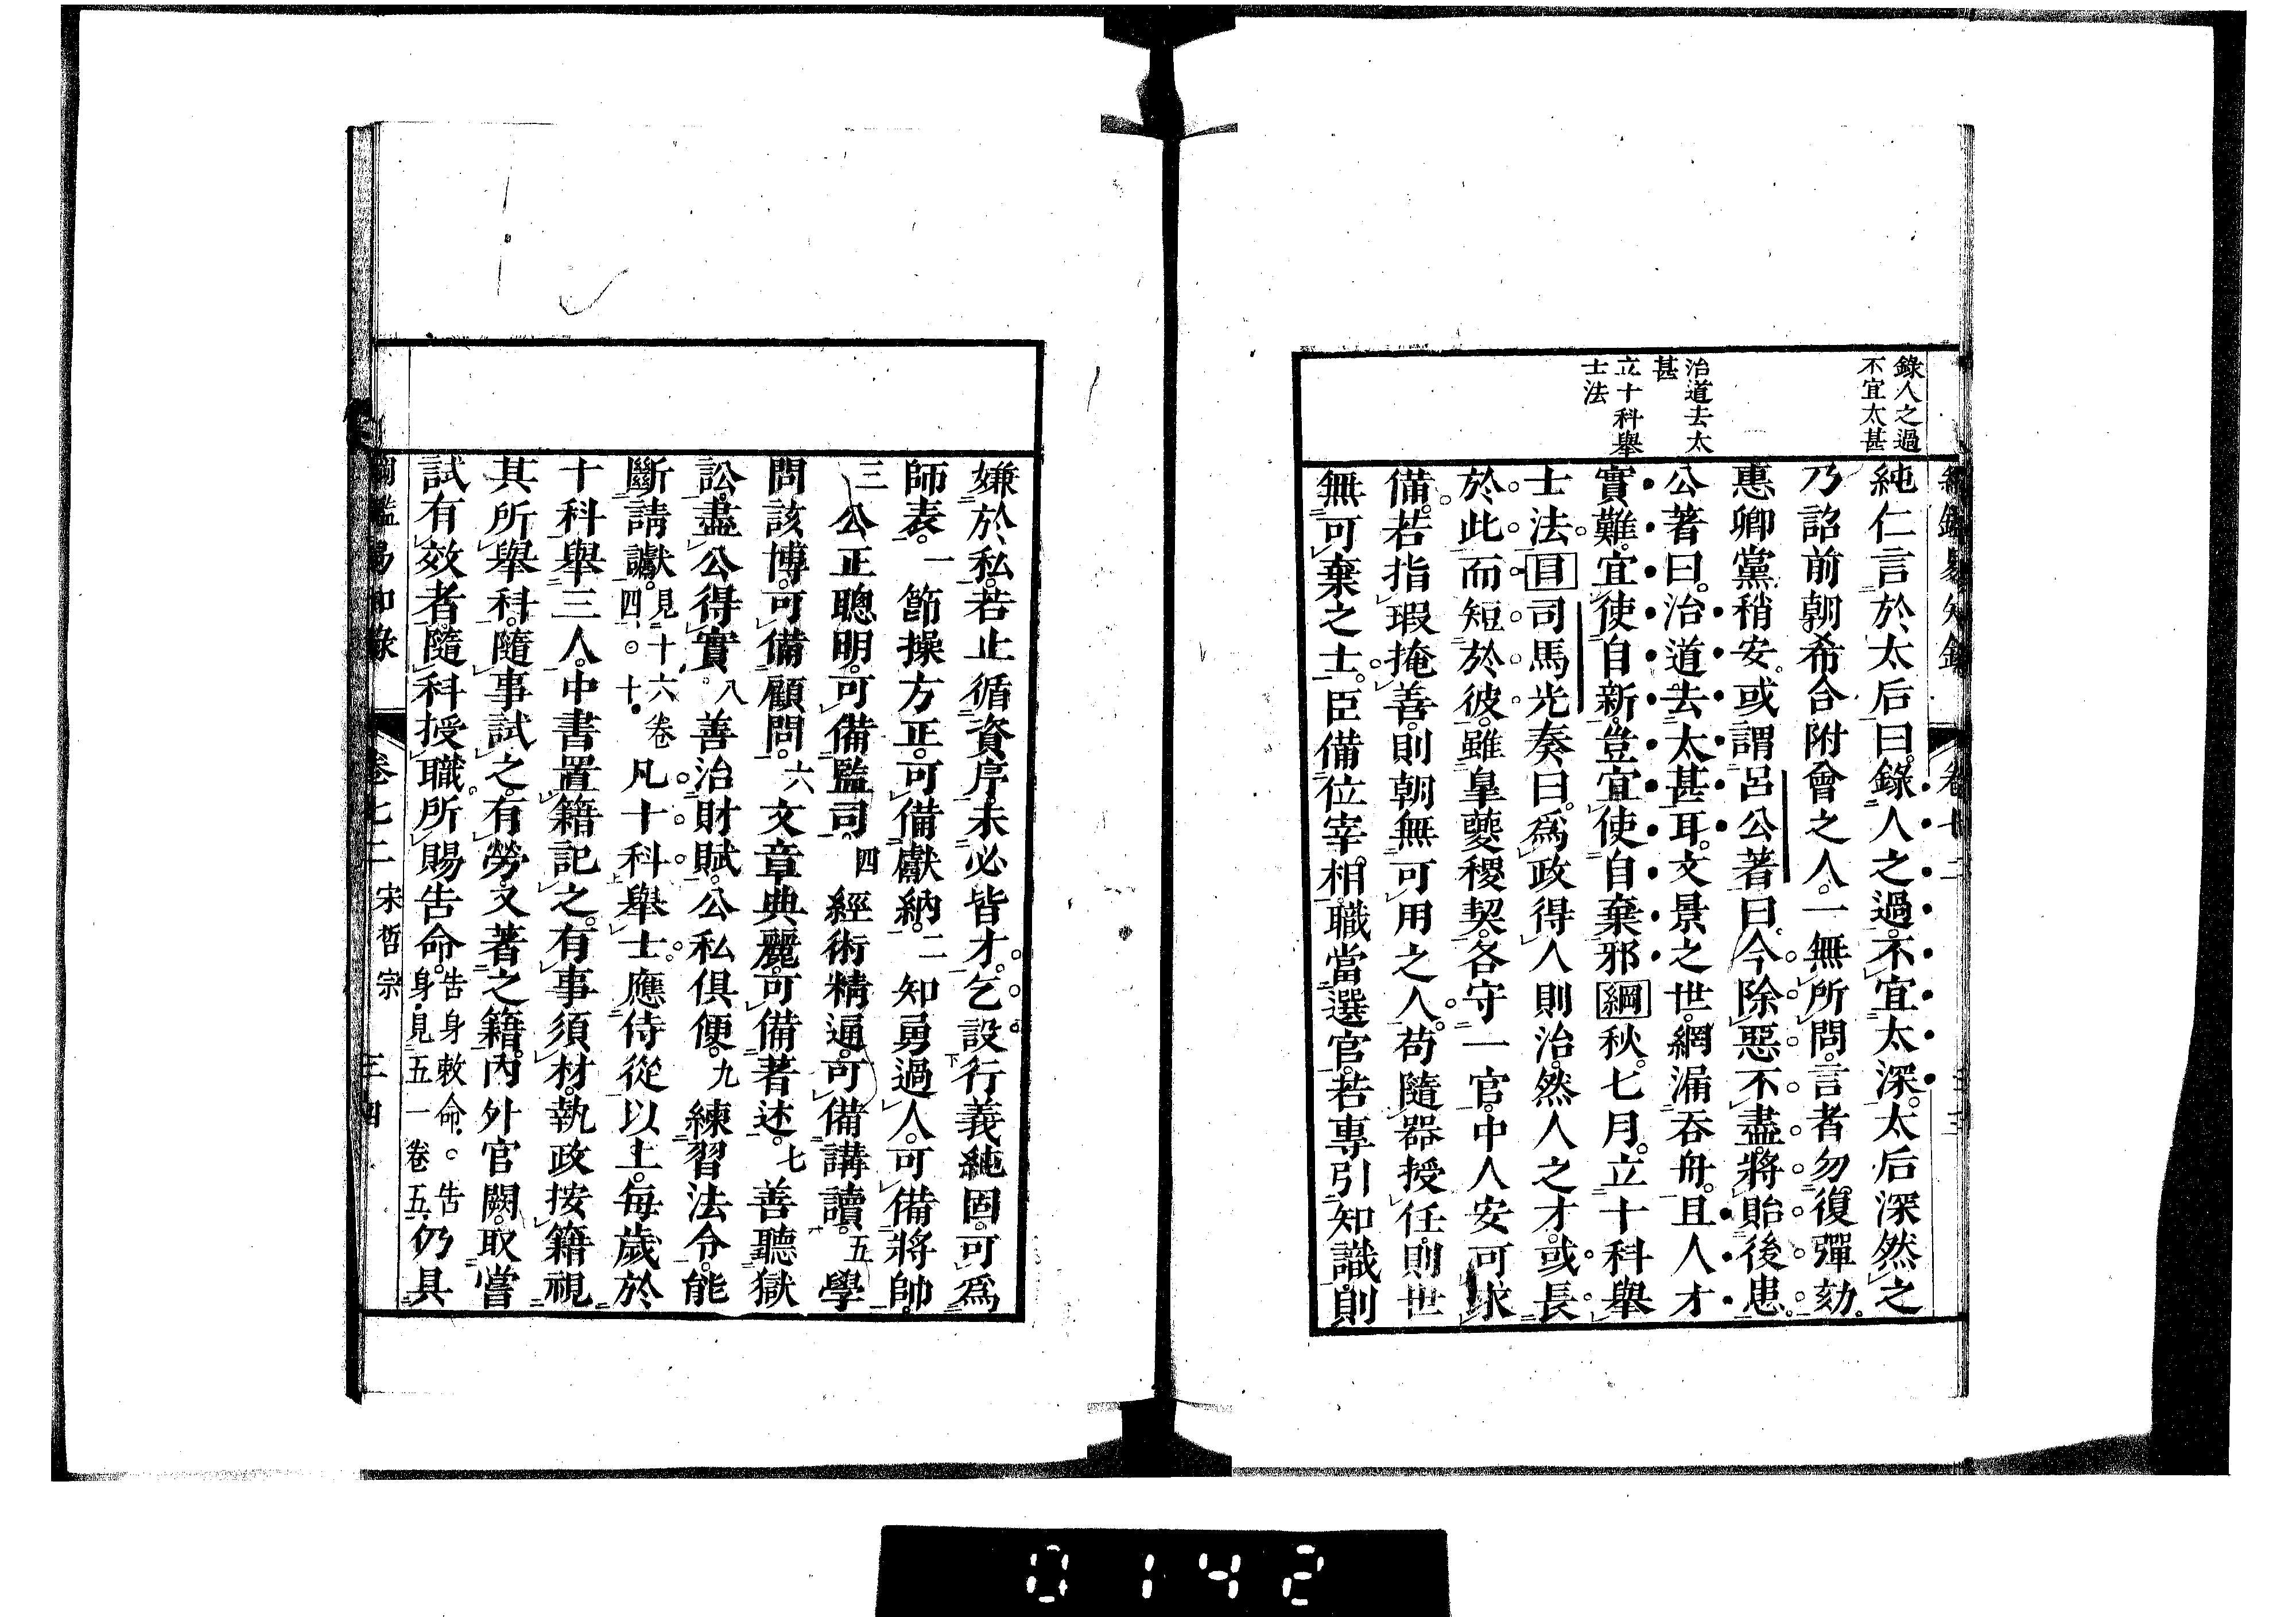 錄人之過
不宜太甚
治道去太
甚
立十科舉
士法
純仁言於太后曰。錄人之過。不宜太深。太后深然之
乃詔前朝希合附會之人。一無所問。言者勿復彈劾。
惠卿黨稍安。或謂呂公著曰。今除惡不盡。將貽後患。
公著曰。治道去太甚耳。文景之世。網漏吞舟。且人才
實難。宜使自新。豈宜使自棄邪綱秋。七月。立十科舉
士法。目司馬光奏曰。爲政得人則治。然人之才。或長
於此而短於彼。雖皐夔稷契。各守一官。中人安可求
備。若指瑕掩善。則朝無可用之人。苟隨器授任。則世
無可棄之士。臣備位宰相。職當選官。若專引知識。則
嫌於私。若止循資序。未必皆才。乞設行義純固。可爲
師表。一節操方正。可備獻納。二知勇過人。可備將帥。
三公正聰明。可備監司。四經術精通。可備講讀。五學
問該博。可備顧問。六文章典麗。可備著述。七善聽獄
訟。盡公得實。八善治財賦。公私俱便。九練習法令。能
斷請讞。見十六卷四。十。凡十科舉士。應侍從以上。每歲於
十科舉三人。中書置籍記之。有事須材。執政按籍視
其所舉科。隨事試之。有勞。又著之籍。內外官闕。取嘗
試有效者。隨科授職。所賜告命。告身敕命。告身。見五一卷五。仍具
綱鑑易知錄 卷七二 宋哲宗 三四